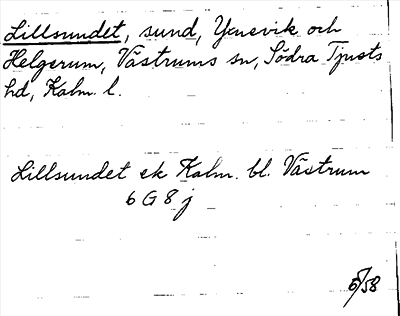 Lillsundet, sund, Yxnevik och
Helgerum, Västrums sn, Södra Tjusts
hd, Kalm. l.
Lillsundet ek Kalm. bl. Västrum
6 G 8 j
5/58